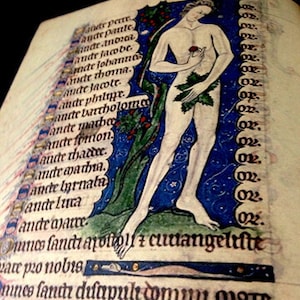 ancte petre. or.
ancte paule. or.
ancte andrea. or.
ancte Jacobe. or.
ancte Johannes. or.
ancte thoma. or.
ancte Jacobe. or.
ancte philippe. or.
ancte bartholomee. or.
ancte mathee. or.
ancte symon. or.
ancte thadee. or.
ancte mathia. or.
ancte barnaba. or.
ancte luca. or.
ancte marce. or.
mnes sancti apostoli et euuangeliste
rate pro nobis
mnes sancti discipuli domini orate